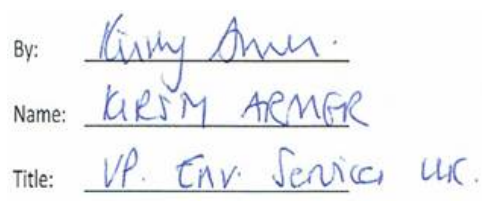 By: Kirsty Armer.
Name: KIRSTY ARMER
Title: VP. Env. Services UK.